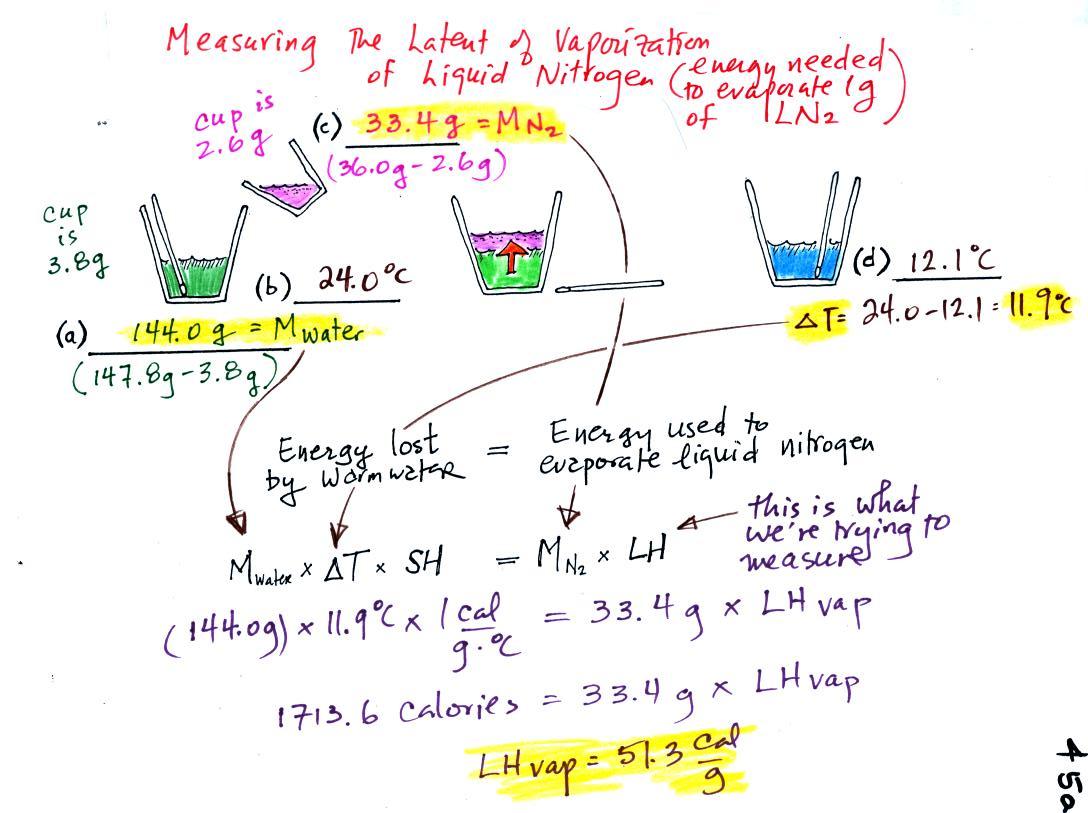 Measuring The Latent of Vaporization
of Liquid Nitrogen (energy needed
to evaporate 1g
of LN2)
cup is
2.6g
(c) 33.4 g = MN2
(36.0g - 2.6g)
cup
is
3.8g
(b) 24.0°C
(d) 12.1°C
ΔT = 24.0 - 12.1 = 11.9°C
(a) 144.0 g = Mwater
(147.8g - 3.8g)
Energy lost
by warm water
=
Energy used to
evaporate liquid nitrogen
this is what
we're trying to
measure
Mwater x ΔT x SH = MN2 x LH
(144.0g) x 11.9°C x 1 cal/g·°C = 33.4 g x LH vap
1713.6 calories = 33.4 g x LH vap
LH vap = 51.3 cal/g
45a